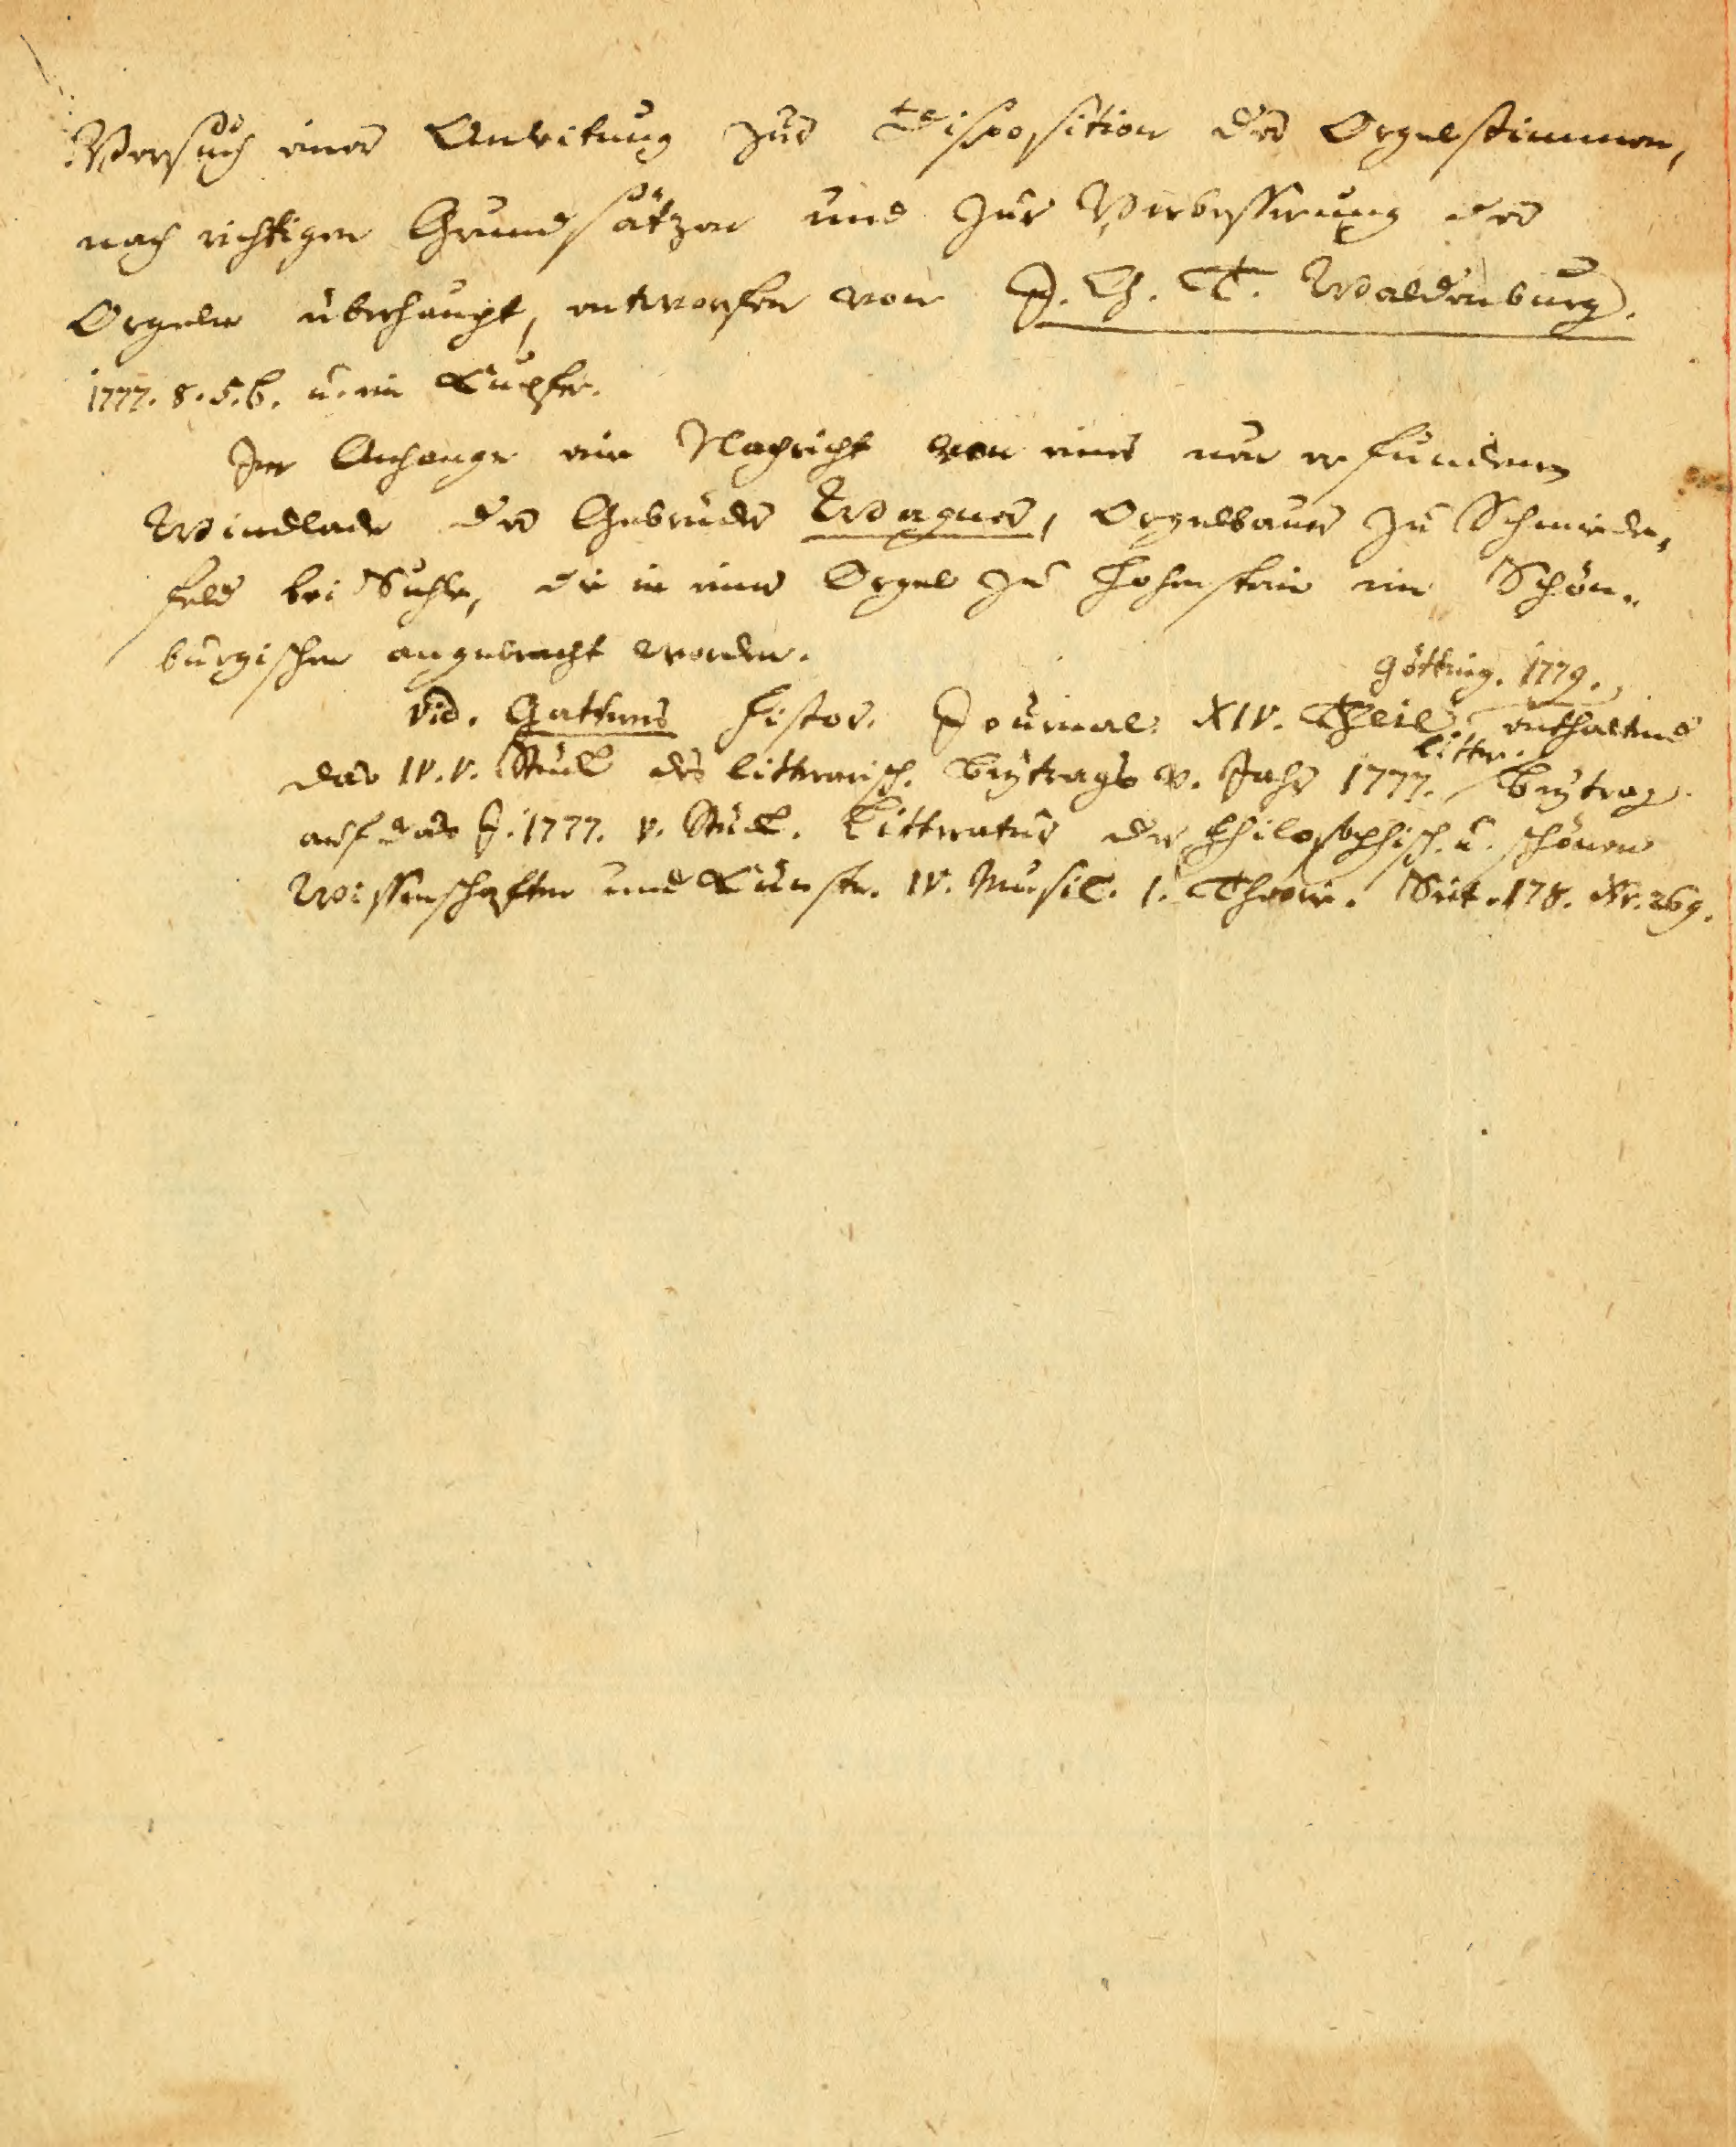 Versuch einer Anleitung zur Disposition der Orgelstimmen,
nach richtigen Grundsätzen und zur Verbesserung der
Orgeln überhaupt, entworfen von J. Ch. T. Waldenburg.
1777. 8. 5. b. u. ein Kupfer.
Im Anhange eine Nachricht von einer neu erfundenen
Windlade der Gebrüder Wagner, Orgelbauer zu Schmiede-
feld bei Suhle, die in einer Orgel zu Hohenstein im Schön-
burgischen angebracht worden.
Götting. 1779.
vid. Gatterers histor. Journal XIV. Theil, enthaltend
das IV. V. Stück des litterarisch. Beytrags v. Jahr 1777. litter. Beytrag
auf das J. 1777. V. Stück. Litteratur der philosophisch. u. schönen
Wissenschaften und Künste. IV. Musik. 1. Theorie. Seit. 178. Nr. 269.